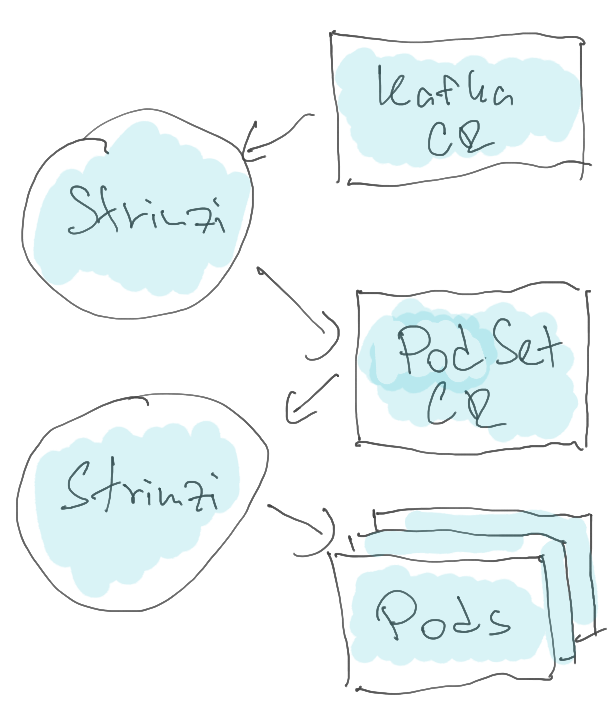 Kafka
CR
Strimzi
PodSet
CR
Strimzi
Pods